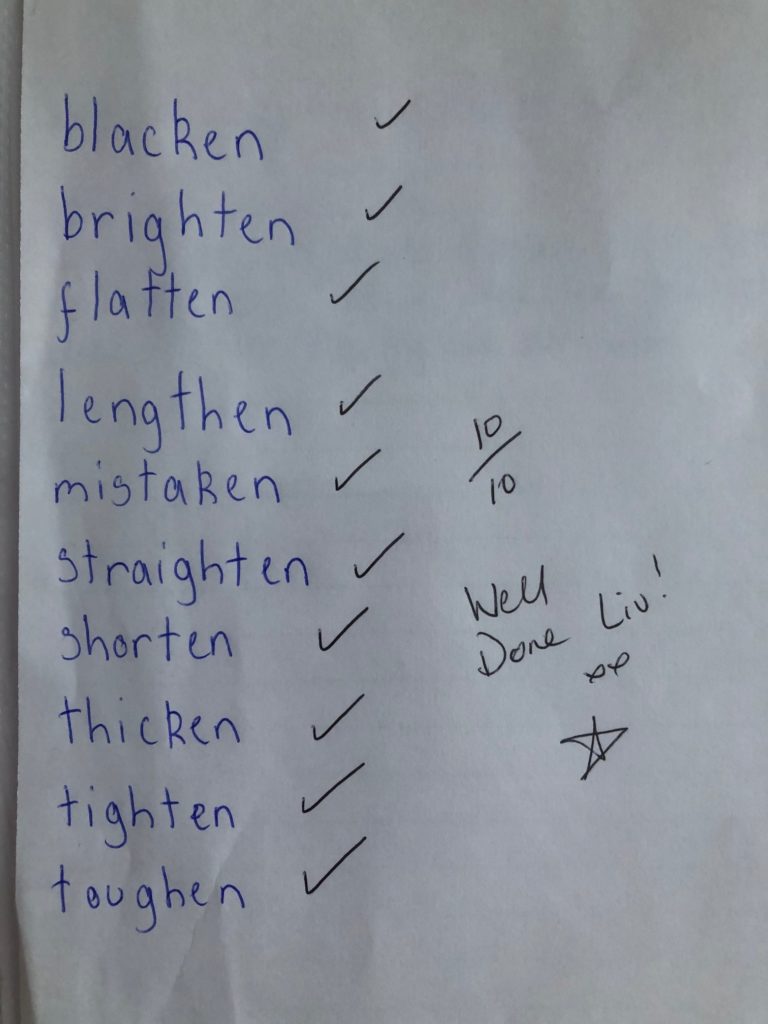 blacken
brighten
flatten
lengthen
mistaken
straighten
shorten
thicken
tighten
toughen
10/10
Well
Done Liv!
xx